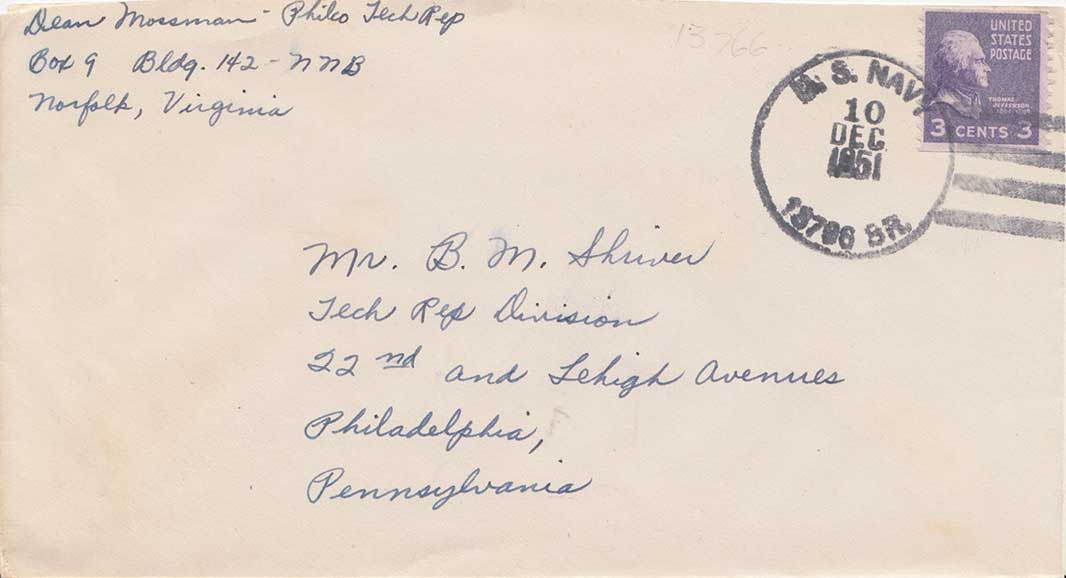 Dean Mossman - Philco Tech Rep
Box 9 Bldg. 142 - NNB
Norfolk, Virginia
13766
U. S. NAVY
10
DEC
1951
13796 BR.
UNITED
STATES
POSTAGE
THOMAS
JEFFERSON
3 CENTS 3
Mr. B. M. Shriver
Tech Rep Division
22nd and Lehigh Avenues
Philadelphia,
Pennsylvania